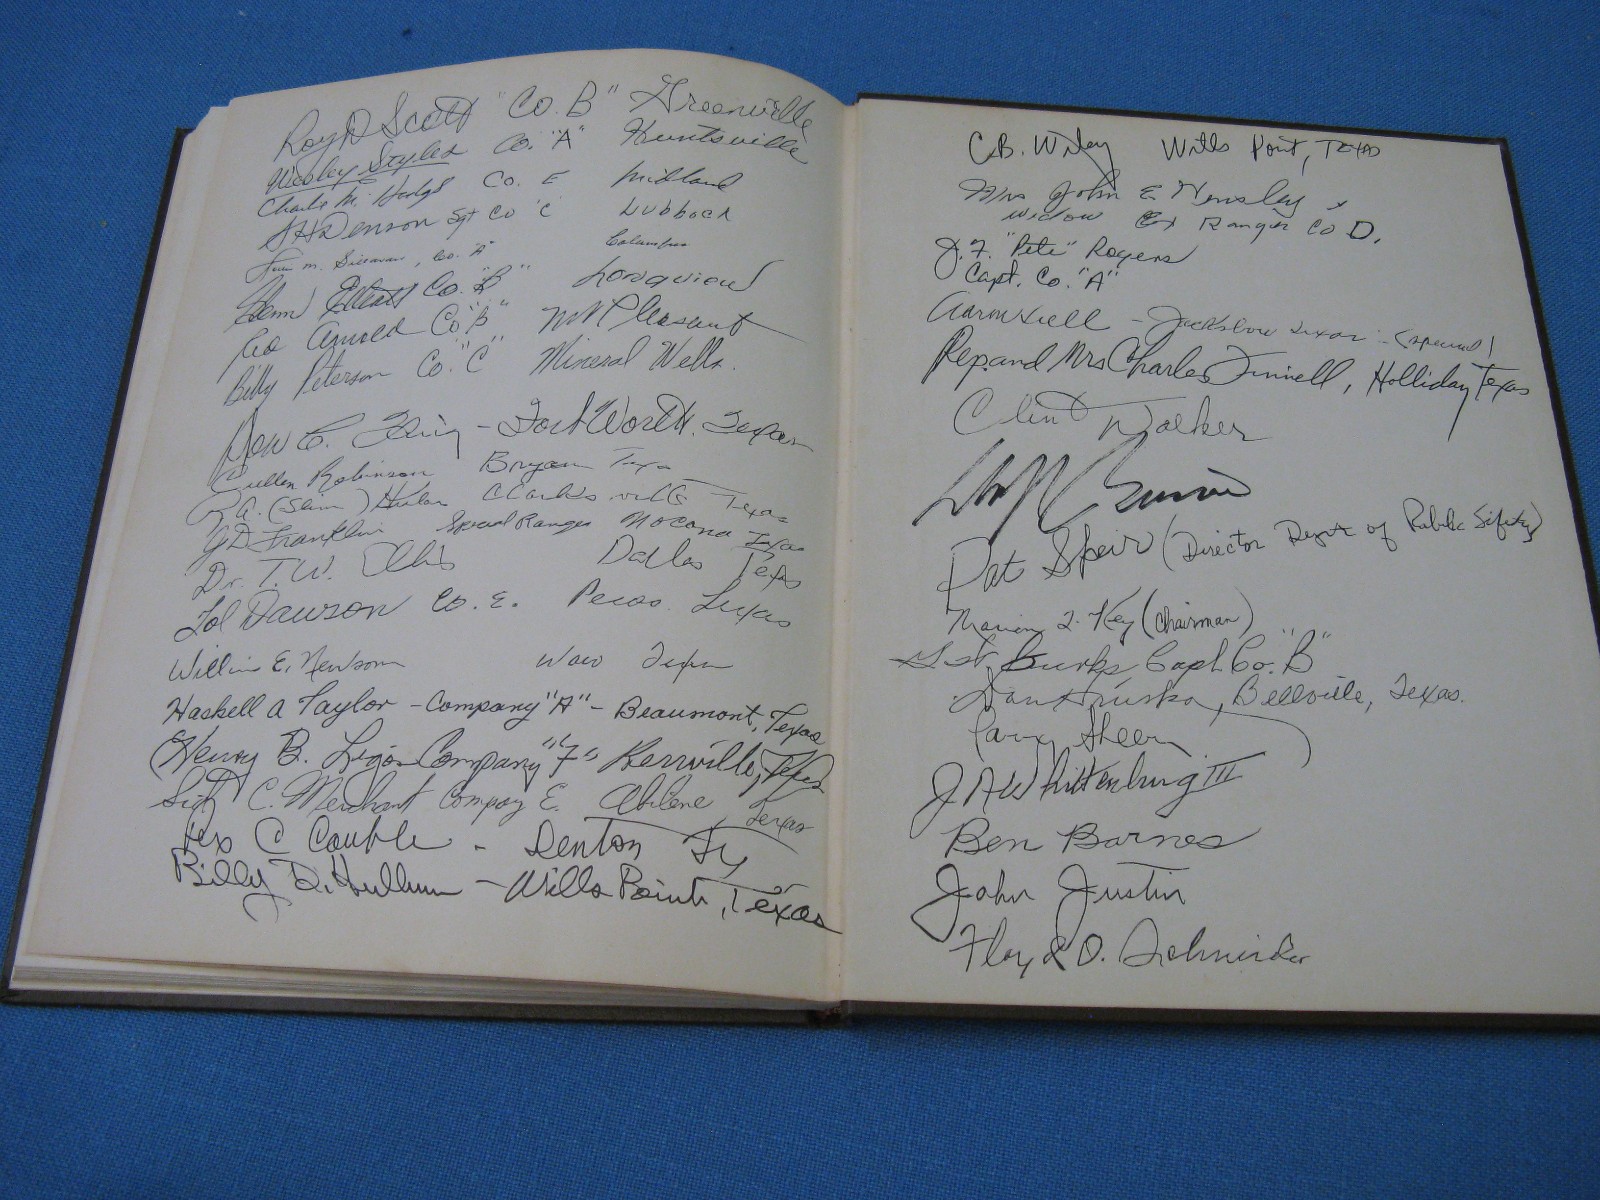 Roy D Scott "Co. B" Greenville
Wesley Styles Co. "A" Huntsville
Charlie M. Hodge Co. E Midland
Denson Sgt Co "C" Lubbock
m. Co. "A" Columbus
Glenn Elliott Co. "B" Longview
Leo Arnold Co "B" Mt Pleasant
Billy Peterson Co. "C" Mineral Wells.
C. - Fort Worth. Texas
Cullen Robinson Bryan Texas
A. (Slim) Clarksville Texas
Franklin Special Ranger Nocona Texas
Dr. T. W. Dallas Texas
Tol Dawson Co. E. Pecos. Texas
E. Newsom Waco Texas
Haskell A Taylor - Company "A" - Beaumont, Texas
Henry B. Ligon Company "F" Kerrville, Texas
C. Merchant Company E. Abilene, Texas
Rex C Cauble - Denton Tx
Billy D. - Wills Point, Texas
C.B. Wiley Wills Point, Texas
Mrs John E Hensley
Widow Ex Ranger Co D.
J. F. "Pete" Rogers
Capt. Co. "A"
Jacksboro Texas - (special)
Rep. and Mrs Charles Finnell, Holliday Texas
Clint Walker
Pat Speir (Director Dept of Public Safety)
Key (Chairman)
Capt. Co. "B"
Bellville, Texas.
Larry Sheerin
J A Whittenburg III
Ben Barnes
John Justin
Floyd D. Schneider